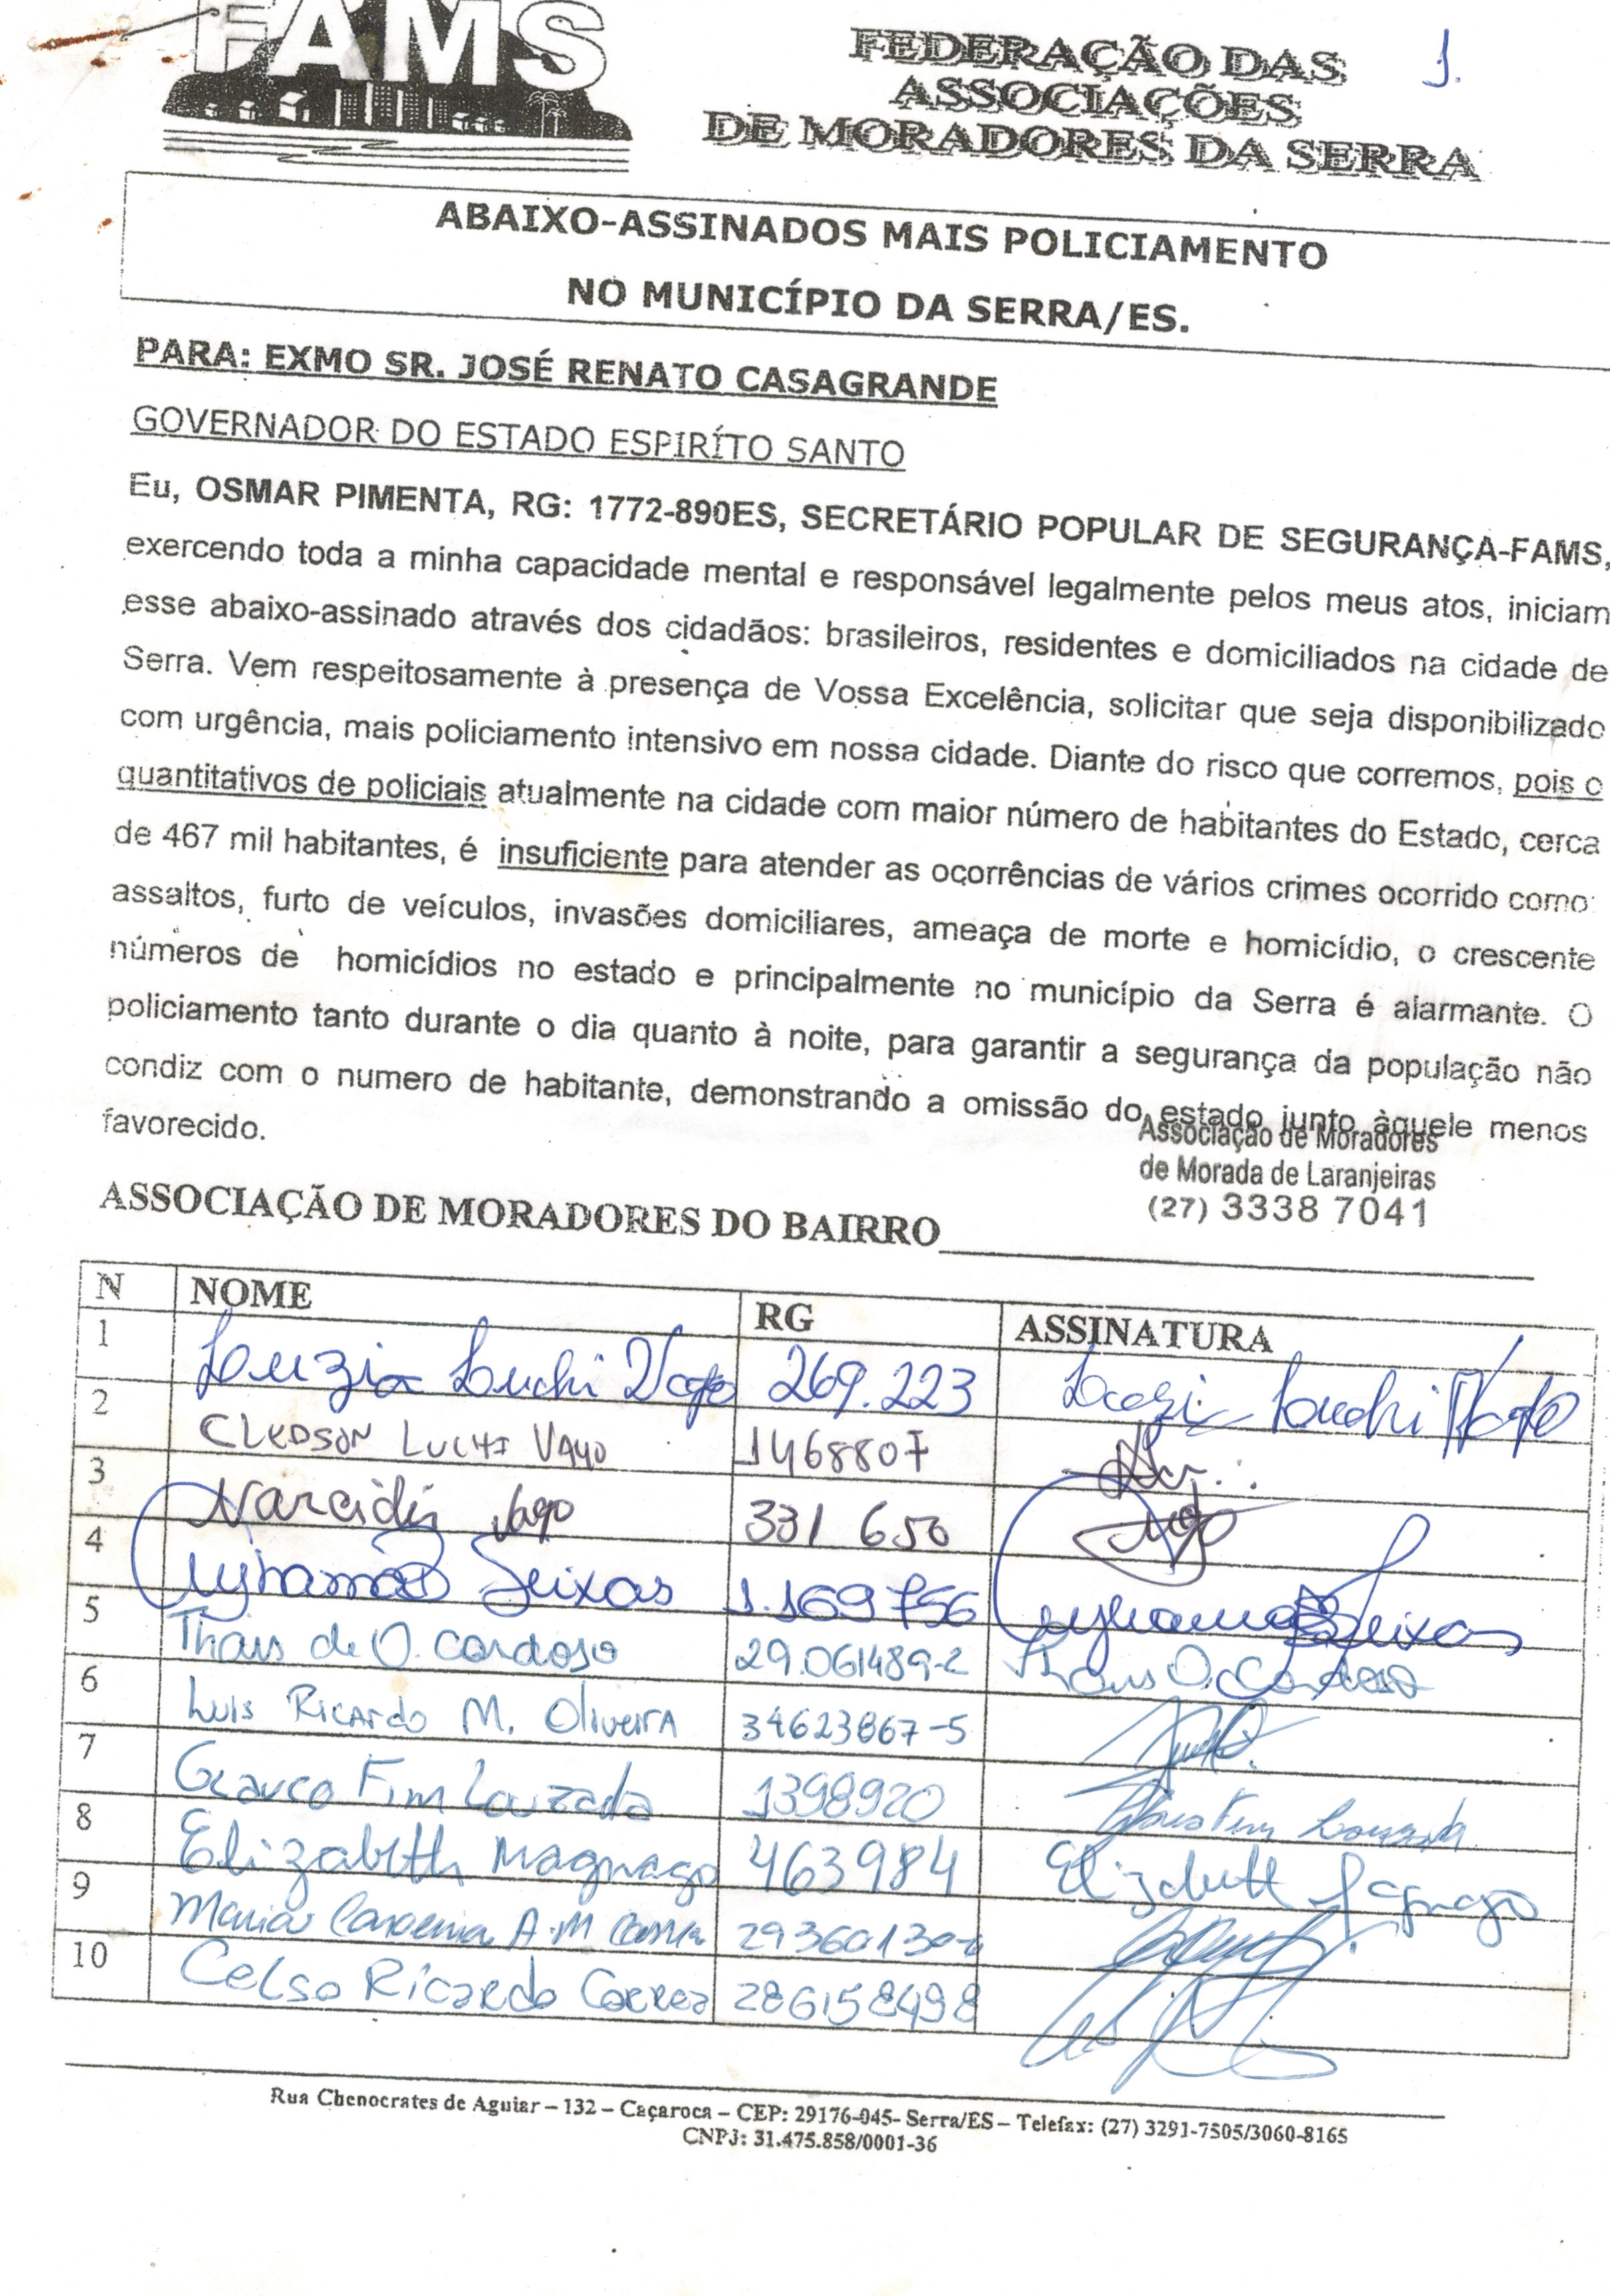 FAMS
FEDERAÇÃO DAS
ASSOCIAÇÕES
DE MORADORES DA SERRA
1.
ABAIXO-ASSINADOS MAIS POLICIAMENTO
NO MUNICÍPIO DA SERRA/ES.
PARA: EXMO SR. JOSÉ RENATO CASAGRANDE
GOVERNADOR DO ESTADO ESPIRÍTO SANTO
Eu, OSMAR PIMENTA, RG: 1772-890ES, SECRETÁRIO POPULAR DE SEGURANÇA-FAMS,
exercendo toda a minha capacidade mental e responsável legalmente pelos meus atos, iniciam
esse abaixo-assinado através dos cidadãos: brasileiros, residentes e domiciliados na cidade de
Serra. Vem respeitosamente à presença de Vossa Excelência, solicitar que seja disponibilizado
com urgência, mais policiamento intensivo em nossa cidade. Diante do risco que corremos, pois o
quantitativos de policiais atualmente na cidade com maior número de habitantes do Estado, cerca
de 467 mil habitantes, é insuficiente para atender as ocorrências de vários crimes ocorrido como:
assaltos, furto de veículos, invasões domiciliares, ameaça de morte e homicídio, o crescente
números de homicídios no estado e principalmente no município da Serra é alarmante. O
policiamento tanto durante o dia quanto à noite, para garantir a segurança da população não
condiz com o numero de habitante, demonstrando a omissão do estado junto àquele menos
favorecido.
Associação de Moradores
de Morada de Laranjeiras
(27) 3338 7041
ASSOCIAÇÃO DE MORADORES DO BAIRRO
N NOME RG ASSINATURA
1 Luzia Luchi Vago 269.223 Luzia Luchi Vago
2 CLEDSON LUCHI VAGO 1468807
3 Vago 331 650
4 Seixas 1.169756 Seixas
5 Thais de O. Cardoso 29.061489-2 Thais O. Cardoso
6 Luis Ricardo M. Oliveira 34623867-5
7 Glauco Fim Louzada 1398920 Fim Louzada
8 Elizabeth Magnago 463984 Elizabeth Magnago
9 Maria A.M
10 Celso Ricardo Correa 286158498
Rua Chenocrates de Aguiar – 132 – Caçaroca – CEP: 29176-045- Serra/ES – Telefax: (27) 3291-7505/3060-8165
CNPJ: 31.475.858/0001-36